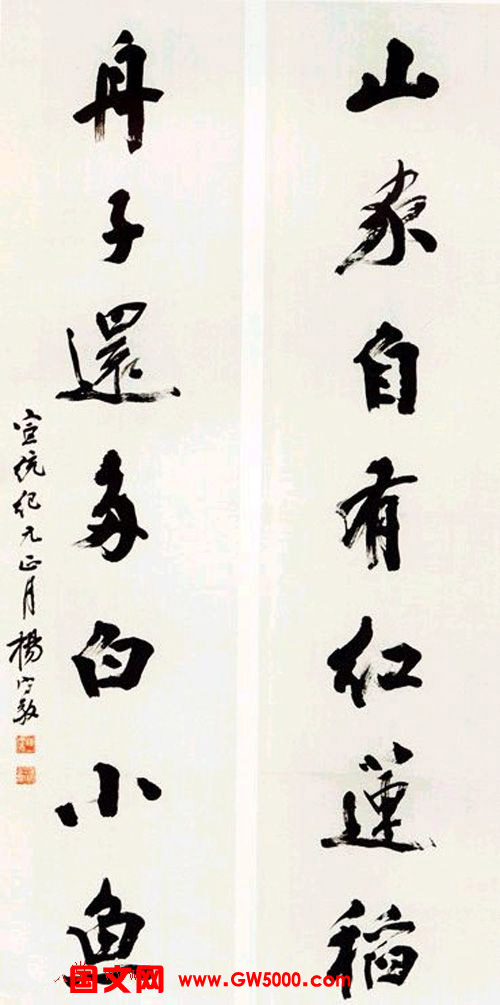 山家自有红莲稻
舟子還多白小魚
宣统纪元正月楊守敬
国文网 www.GW5000.com